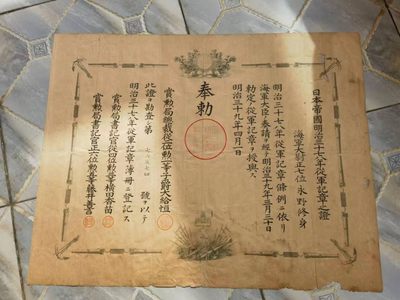 日本帝國明治三十七八年從軍記章之證
海軍大尉正七位 永野修身
明治三十七八年從軍記章條例ニ依リ
海軍大臣ノ奏請ヲ經テ明治三十九年三月三十日
勅定ノ從軍記章ヲ授與ス
明治三十九年四月一日
奉勅
賞勲局總裁 勲一等子爵大給恒
此證ヲ勘査シ第 號ヲ以テ
明治三十七八年從軍記章簿冊ニ登記ス
賞勲局書記官從四位勲三等横田香苗
賞勲局書記官正六位勲五等藤井善言